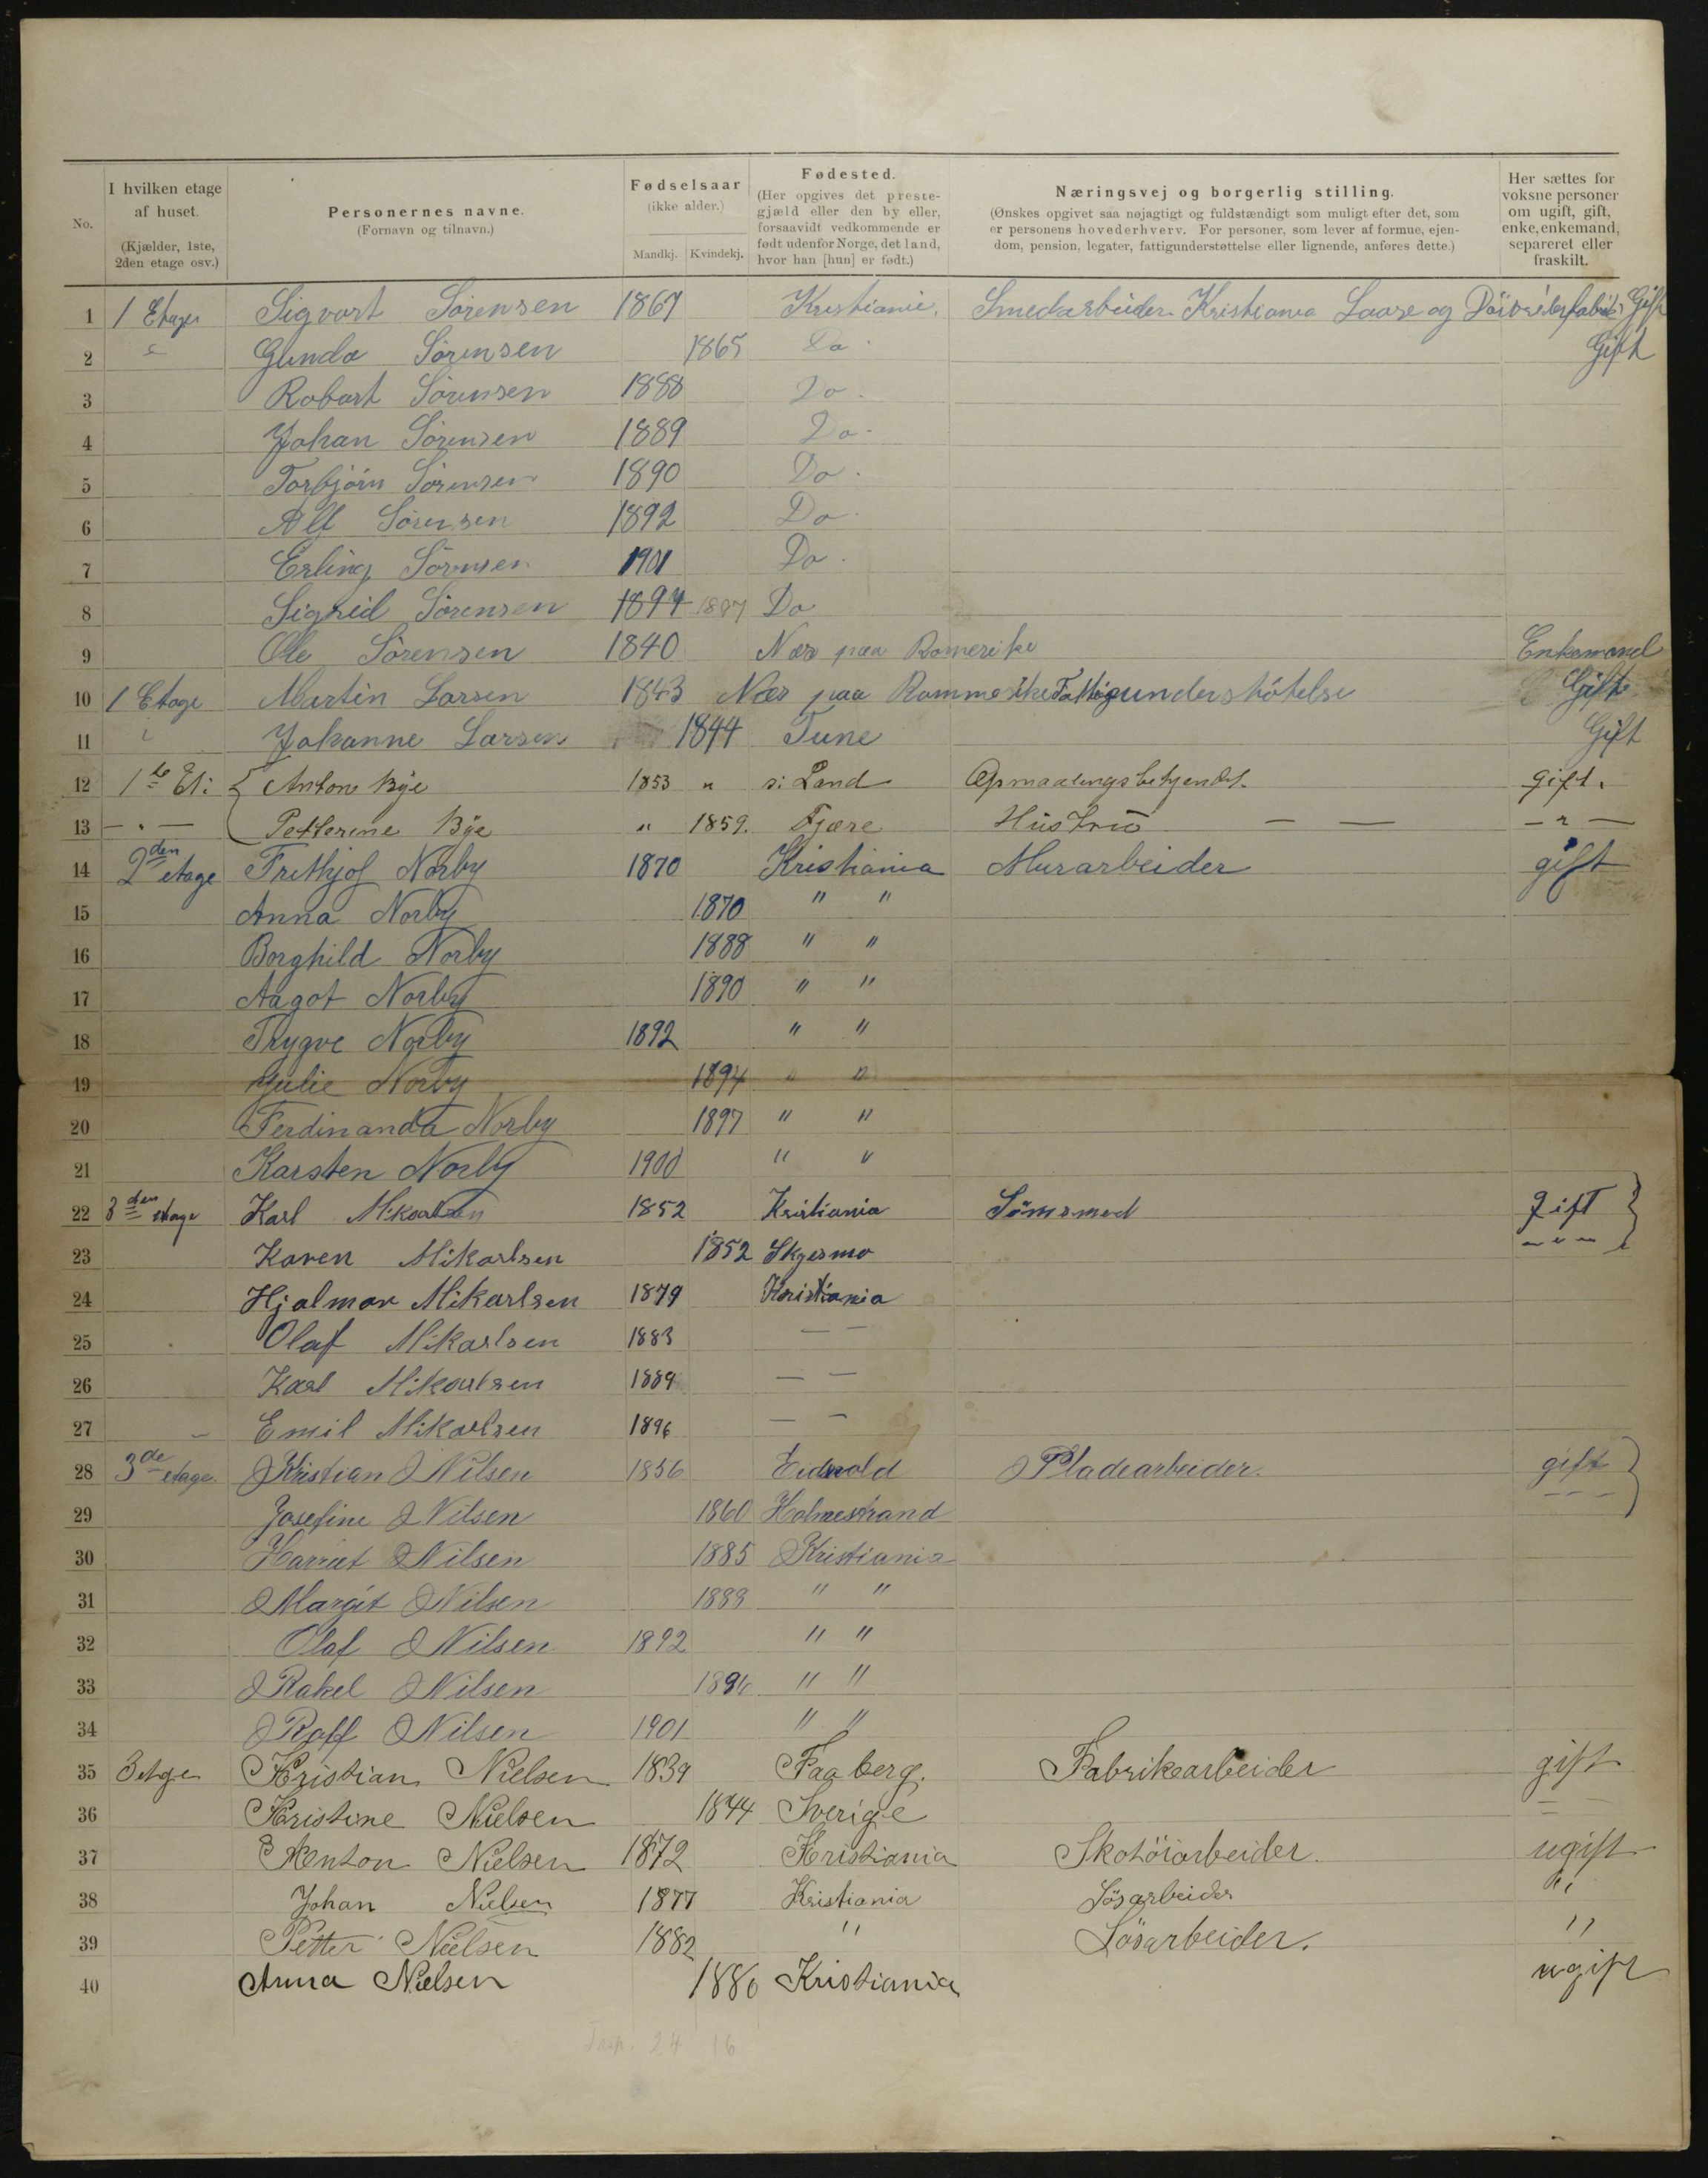 No.
I hvilken etage af huset. (Kjælder, 1ste, 2den etage osv.)
Personernes navne. (Fornavn og tilnavn.)
Fødselsaar (ikke alder.) Mandkj. Kvindekj.
Fødested. (Her opgives det prestegjæld eller den by eller, forsaavidt vedkommende er født udenfor Norge, det land, hvor han [hun] er født.)
Næringsvej og borgerlig stilling. (Ønskes opgivet saa nøjagtigt og fuldstændigt som muligt efter det, som er personens hovederhverv. For personer, som lever af formue, ejendom, pension, legater, fattigunderstøttelse eller lignende, anføres dette.)
Her sættes for voksne personer om ugift, gift, enke, enkemand, separeret eller fraskilt.
1 1 Etage Sigvart Sørensen 1867 Kristiania. Smedarbeider Kristiania Laase og Gift
2 Gunda Sørensen 1865 Do. Gift
3 Robart Sørensen 1888 Do.
4 Johan Sørensen 1889 Do.
5 Torbjörn Sørensen 1890 Do.
6 Alf Sørensen 1892 Do.
7 Erling Sørensen 1901 Do.
8 Sigrid Sørensen 1897 1897 Do
9 Ole Sørensen 1840 Næs paa Romerike Enkemand
10 1 Etage Martin Larsen 1843 Næs paa Rommerike Fattigunderstötelse Gift
11 Johanne Larsen 1844 Tune Gift
12 1ste Et: Anton Bÿe 1853 " s: Land Opmaalingsbetjendt. gift.
13 — " — Petterine Bÿe " 1859. Fjære Hustru — — — " —
14 2den etage Frithjof Norby 1870 Kristiania Murarbeider gift
15 Anna Norby 1870 " "
16 Borghild Norby 1888 " "
17 Aagot Norby 1890 " "
18 Trygve Norby 1892 " "
19 Julie Norby 1894 " "
20 Ferdinanda Norby 1897 " "
21 Karsten Norby 1900 " "
22 3den etage Karl Mikarlsen 1852 Kristiania Sömsmed gift
23 Karen Mikarlsen 1852 Skjesmo — " —
24 Hjalmar Mikarlsen 1879 Kristiania
25 Olaf Mikarlsen 1883 — —
26 Karl Mikarlsen 1889 — —
27 Emil Mikarlsen 1896 — —
28 3de etage. Kristian Nilsen 1856 Eidsvold Pladearbeider. gift
29 Josefine Nilsen 1860 Holmestrand — — —
30 Harriet Nilsen 1885 Kristiania
31 Margit Nilsen 1889 " "
32 Olaf Nilsen 1892 " "
33 Rakel Nilsen " "
34 Rolf Nilsen 1901 " "
35 3 etage Kristian Nielsen 1839 Faaberg. Fabrikarbeider gift
36 Kristine Nielsen 1844 Sverige — —
37 Anton Nielsen 1872 Kristiania Skotöiarbeider. ugift
38 Johan Nielsen 1877 Kristiania Lösarbeider "
39 Petter Nielsen 1882 " Lösarbeider. "
40 Anna Nielsen 1886 Kristiania ugift
24 16